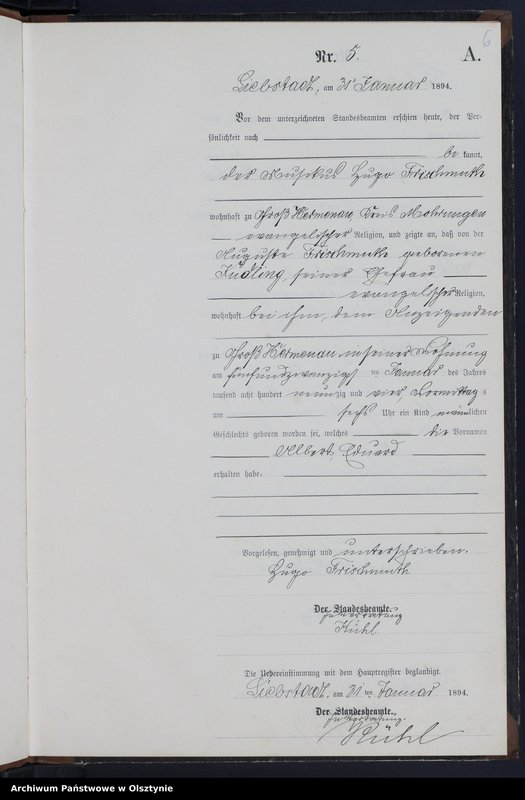 6
Nr. 5. A.
Liebstadt, am 31 Januar 1894.
Vor dem unterzeichneten Standesbeamten erschien heute, der Per-
sönlichkeit nach
be kannt,
der Musikus Hugo Frischmuth
wohnhaft zu Groß Hermenau, Kreis Mohrungen
evangelischer Religion, und zeigte an, daß von der
Auguste Frischmuth geborenen
Jüdling, seiner Ehefrau
evangelischer Religion,
wohnhaft bei ihm, dem Anzeigenden
zu Groß Hermenau in seiner Wohnung
am fünfundzwanzigsten Januar des Jahres
tausend acht hundert neunzig und vier, Vormittags
um sechs Uhr ein Kind männlichen
Geschlechts geboren worden sei, welches die Vornamen
Albert, Eduard
erhalten habe.
Vorgelesen, genehmigt und unterschrieben.
Hugo Frischmuth
Der Standesbeamte.
In Vertretung
Kühl.
Die Uebereinstimmung mit dem Hauptregister beglaubigt.
Liebstadt, am 31 ten Januar 1894.
Der Standesbeamte.
In Vertretung.
Kühl
Archiwum Państwowe w Olsztynie